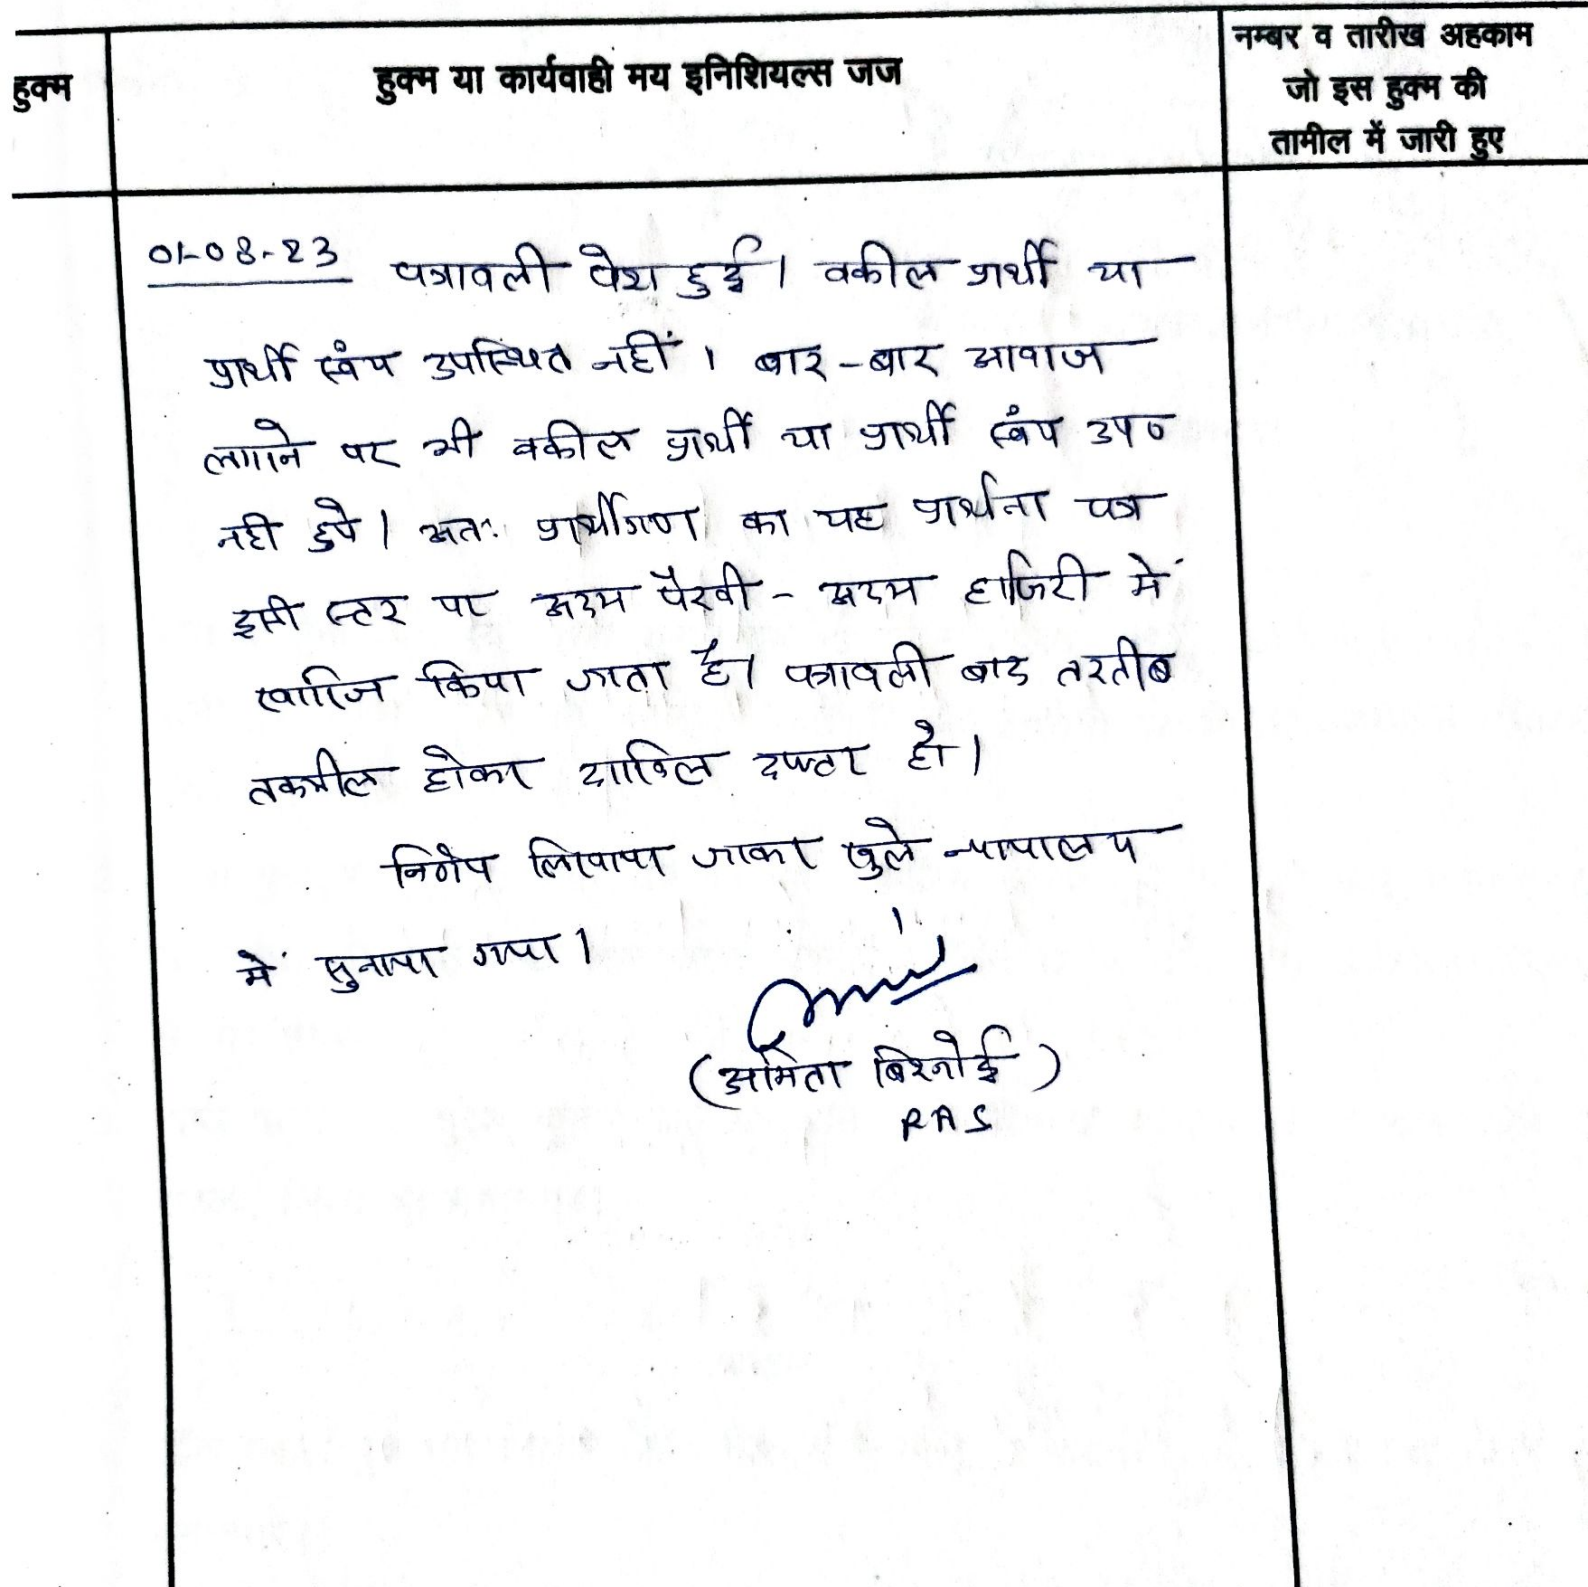 हुक्म
हुक्म या कार्यवाही मय इनिशियल्स जज
नम्बर व तारीख अहकाम
जो इस हुक्म की
तामील में जारी हुए
01-08-23 पत्रावली पेश हुई। वकील प्रार्थी या
प्रार्थी स्वंय उपस्थित नहीं। बार-बार आवाज
लगाने पर भी वकील प्रार्थी या प्रार्थी स्वंय उप०
नही हुये। अतः प्रार्थीगण का यह प्रार्थना पत्र
इसी स्तर पर अदम पैरवी - अदम हाजिरी में
खारिज किया जाता है। पत्रावली बाद तरतीब
तकमील होकर दाखिल दफ्तर हो।
निर्णय लिखाया जाकर खुले न्यायालय
में सुनाया गया।
(अमिता बिश्नोई)
RAS